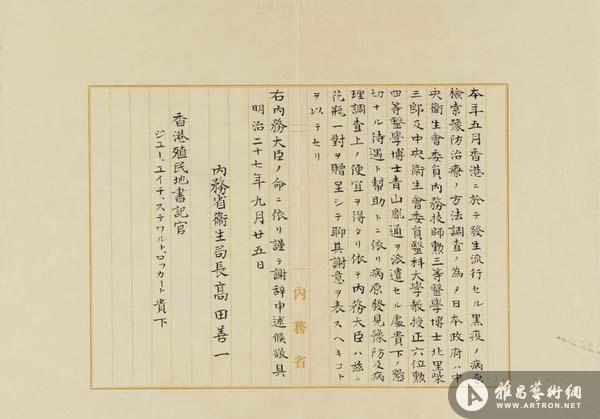 本年五月香港ニ於テ發生流行セル黒疫ノ病原
檢索豫防治療ノ方法調査ノ為メ日本政府ハ中
央衛生會委員内務技師勲三等醫學博士北里柴
三郎及中央衛生會委員醫科大學教授正六位勲
四等醫學博士青山胤通ヲ派遣セル處貴下ノ懇
切ナル待遇ト幇助トニ依リ病原發見豫防及病
理調査上ノ便宜ヲ得タリ依テ内務大臣ハ茲ニ
花瓶一對ヲ贈呈シテ聊其謝意ヲ表スヘキコト
ヲ以テセリ
右内務大臣ノ命ニ依リ謹テ謝辞申述候敬具
明治二十七年九月廿五日
内務省衛生局長高田善一
香港殖民地書記官
ジエー、エイチ、ステワルト、ロッカート貴下
内務省
雅昌藝術網
WWW.ARTRON.NET